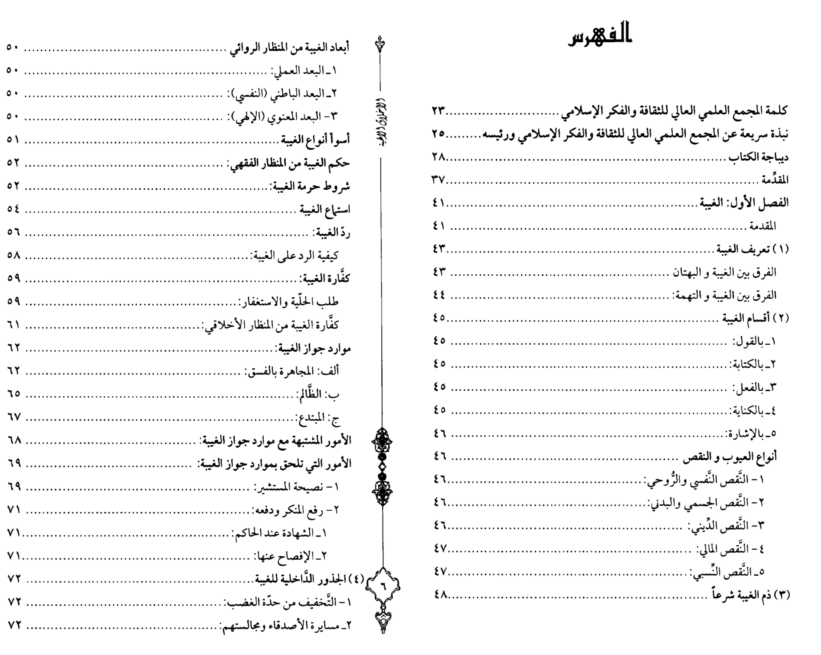 الفهرس
كلمة المجمع العلمي العالي للثقافة والفكر الإسلامي............................٢٣
نبذة سريعة عن المجمع العلمي العالي للثقافة والفكر الإسلامي ورئيسه.........٢٥
ديباجة الكتاب.....................................................................٢٨
المقدِّمة..............................................................................٣٧
الفصل الأول: الغيبة..............................................................٤١
المقدمة.............................................................................. ٤١
(١) تعريف الغيبة..................................................................٤٣
الفرق بين الغيبة و البهتان ...................................................... ٤٣
الفرق بين الغيبة و التهمة:...................................................... ٤٤
(٢) أقسام الغيبة ..................................................................٤٥
١ـ بالقول: ........................................................................ ٤٥
٢ـ بالكتابة:....................................................................... ٤٥
٣ـ بالفعل:........................................................................ ٤٥
٤ـ بالكناية:....................................................................... ٤٥
٥ـ بالإشارة:...................................................................... ٤٦
أنواع العيوب و النقص ........................................................ ٤٦
١- النَّقص النَّفسي والرُّوحي:...................................................٤٦
٢- النَّقص الجسمي والبدني:....................................................٤٦
٣- النَّقص الدِّيني: .............................................................. ٤٦
٤- النَّقص المالي: ................................................................٤٧
٥ـ النَّقص النِّسبي:...............................................................٤٧
(٣) ذم الغيبة شرعاً ..............................................................٤٨
أبعاد الغيبة من المنظار الروائي .................................................. ٥٠
١ـ البعد العملي: ................................................................. ٥٠
٢ـ البعد الباطني (النفسي): ..................................................... ٥٠
٣- البعد المعنوي (الإلهي): ..................................................... ٥٠
أسوأ أنواع الغيبة................................................................. ٥١
حكم الغيبة من المنظار الفقهي:................................................ ٥٢
شروط حرمة الغيبة:............................................................. ٥٢
استماع الغيبة ..................................................................... ٥٤
ردّ الغيبة: ......................................................................... ٥٦
كيفية الرد على الغيبة:........................................................... ٥٨
كفَّارة الغيبة:...................................................................... ٥٩
طلب الحلّية والاستغفار:........................................................ ٥٩
كفَّارة الغيبة من المنظار الأخلاقي:............................................. ٦١
موارد جواز الغيبة:............................................................... ٦٢
ألف: المجاهرة بالفسق: ......................................................... ٦٢
ب: الظَّالم:........................................................................ ٦٥
ج: المبتدع:........................................................................ ٦٧
الأمور المشتبهة مع موارد جواز الغيبة: ........................................ ٦٨
الأمور التي تلحق بموارد جواز الغيبة: ........................................ ٦٩
١- نصيحة المستشير: ........................................................... ٦٩
٢- رفع المنكر ودفعه: .......................................................... ٧١
١ـ الشهادة عند الحاكم:.........................................................٧١
٢ـ الإفصاح عنها: ................................................................٧١
(٤) الجذور الدَّاخلية للغيبة....................................................... ٧٢
١- التَّخفيف من حدّة الغضب:................................................. ٧٢
٢ـ مسايرة الأصدقاء ومجالستهم:............................................... ٧٢
٦